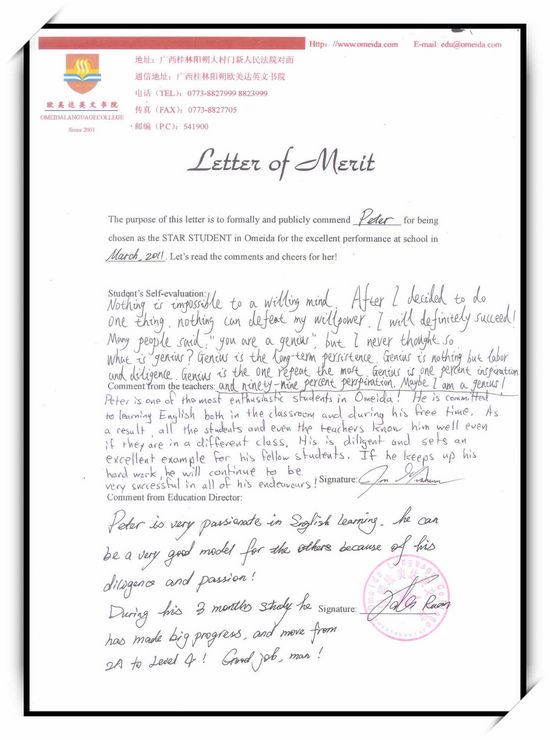 Http: //www.omeida.com E-mail: edu@omeida.com
地址：广西桂林阳朔大村门新人民法院对面
通信地址：广西桂林阳朔欧美达英文书院
电话（TEL）：0773-8827999 8823999
传真（FAX）：0773-8827705
邮编（P.C）：541900
欧美达英文书院
OMEIDALANGUAGECOLLEGE
Since 2001
Letter of Merit
The purpose of this letter is to formally and publicly commend Peter for being
chosen as the STAR STUDENT in Omeida for the excellent performance at school in
March, 2011. Let's read the comments and cheers for her!
Student's Self-evaluation:
Nothing is impossible to a willing mind. After I decided to do
one thing, nothing can defeat my willpower. I will definitely succeed!
Many people said, "you are a genius", but I never thought so.
What is genius? Genius is the long-term persistence. Genius is nothing but labor
and diligence. Genius is the one repeat the most. Genius is one percent inspiration
Comment from the teachers: and ninety-nine percent perspiration. Maybe I am a genius!
Peter is one of the most enthusiastic students in Omeida! He is committed
to learning English both in the classroom and during his free time. As
a result, all the students and even the teachers know him well even
if they are in a different class. His is diligent and sets an
excellent example for his fellow students. If he keeps up his
hard work, he will continue to be
very successful in all of his endeavours! Signature:
Comment from Education Director:
Peter is very passionate in English learning. he can
be a very good model for the others because of his
diligence and passion!
During his 3 months study he Signature:
has made big progress, and move from
2A to Level 4! Good job, man!